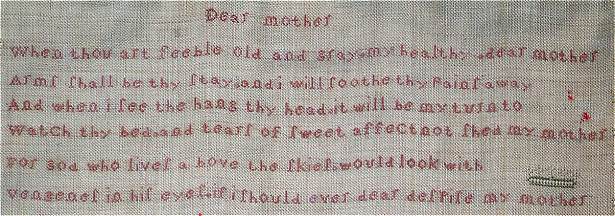 Dear mother
When thou art feeble old and gray my healthy dear mother
Arms ſhall be thy ſtay and i will ſoothe thy Pains away
And when i ſee the hang thy head it will be my turn to
Watch thy bed and tears of ſweet affectnot ſhed my mother
For god who lives a bove the ſkies would look with
vengenes in his eyes if i ſhould ever dear deſpiſe my mother